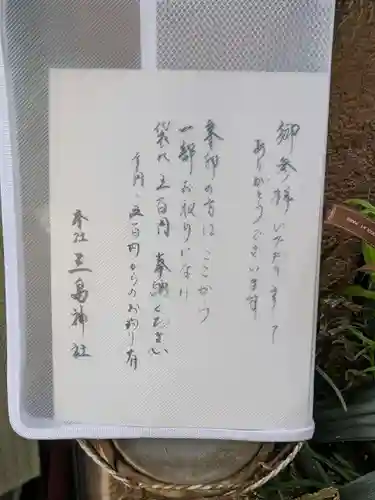 御参拝いただきまして
ありがとうございます
奉印の方は ここから
一部お取りになり
袋に五百円 奉納ください
千円、五百円からのお釣り有
本社 三島神社